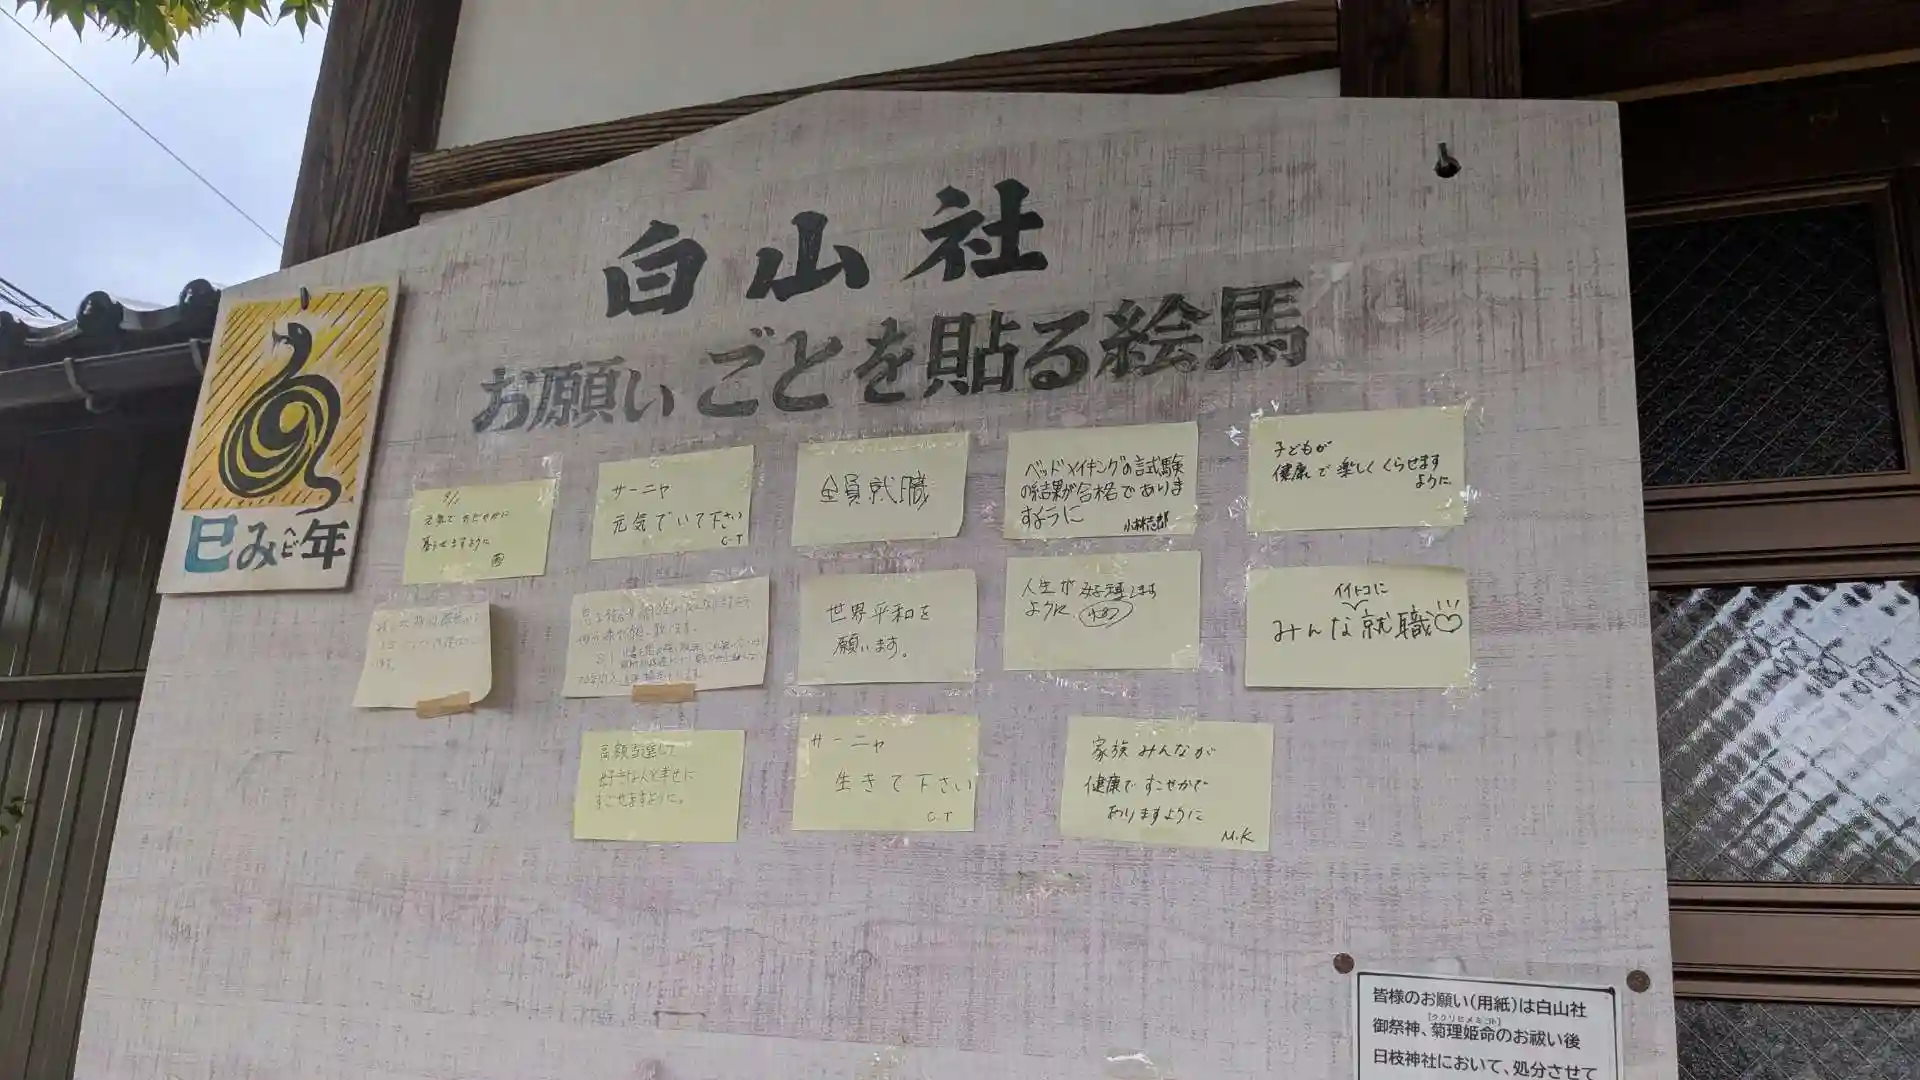 白山社
お願いごとを貼る絵馬
巳みヘビ年
9/1
元気でおだやかに
暮らせますように
サーニャ
元気でいて下さい
C・T
全員就職
ベッドメイキングの試験
の結果が合格でありま
すように
小林志郎
子どもが
健康で楽しくくらせます
ように
世界平和を
願います。
人生が好転します
ように
イイトコに
みんな就職♡
高額当選して
好きな人と幸せに
すごせますように。
サーニャ
生きて下さい
C・T
家族みんなが
健康ですこやかで
ありますように
M.K
皆様のお願い(用紙)は白山社
御祭神、菊理姫命のお祓い後
(ククリヒメミコト)
日枝神社において、処分させて